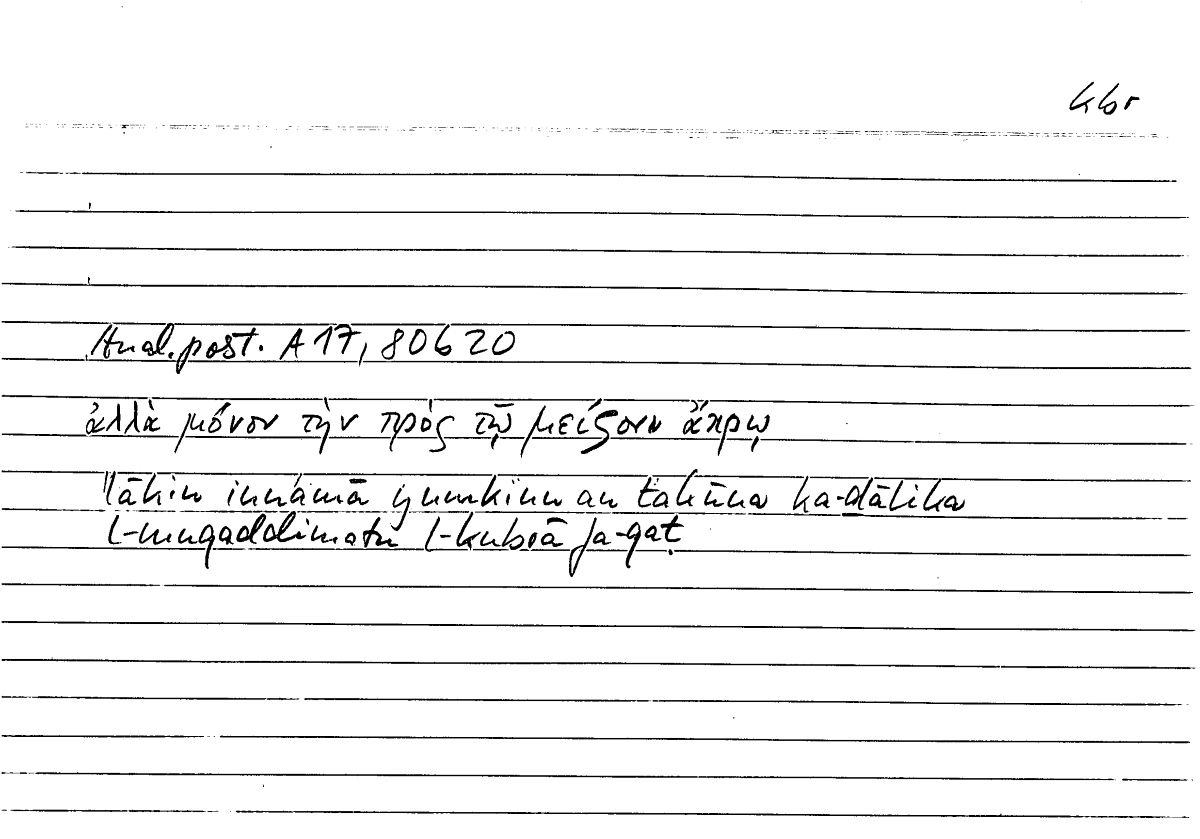 kbr
Anal. post. A 17, 80b20
ἀλλὰ μόνον τὴν πρὸς τῷ μείζονι ἄκρῳ
lākin innamā yumkinu an takūna ka-ḏālika
l-muqaddimatu l-kubrā fa-qaṭ